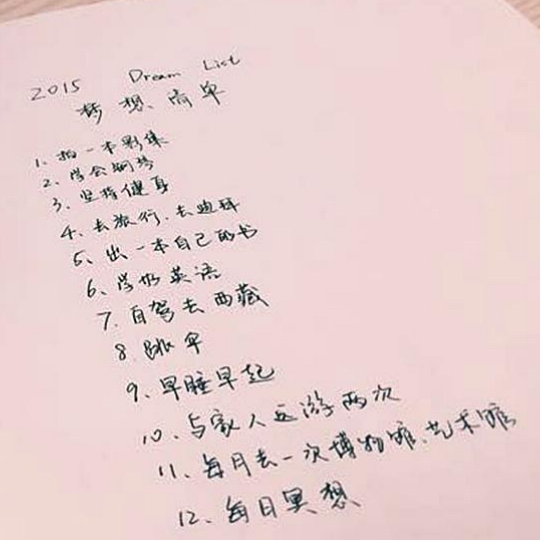 2015 Dream List
梦想清单
1. 拍一本影集
2. 学会钢琴
3. 坚持健身
4. 去旅行、去迪拜
5. 出一本自己的书
6. 学好英语
7. 自驾去西藏
8. 跳伞
9. 早睡早起
10. 与家人远游两次
11. 每月去一次博物馆、艺术馆
12. 每日冥想